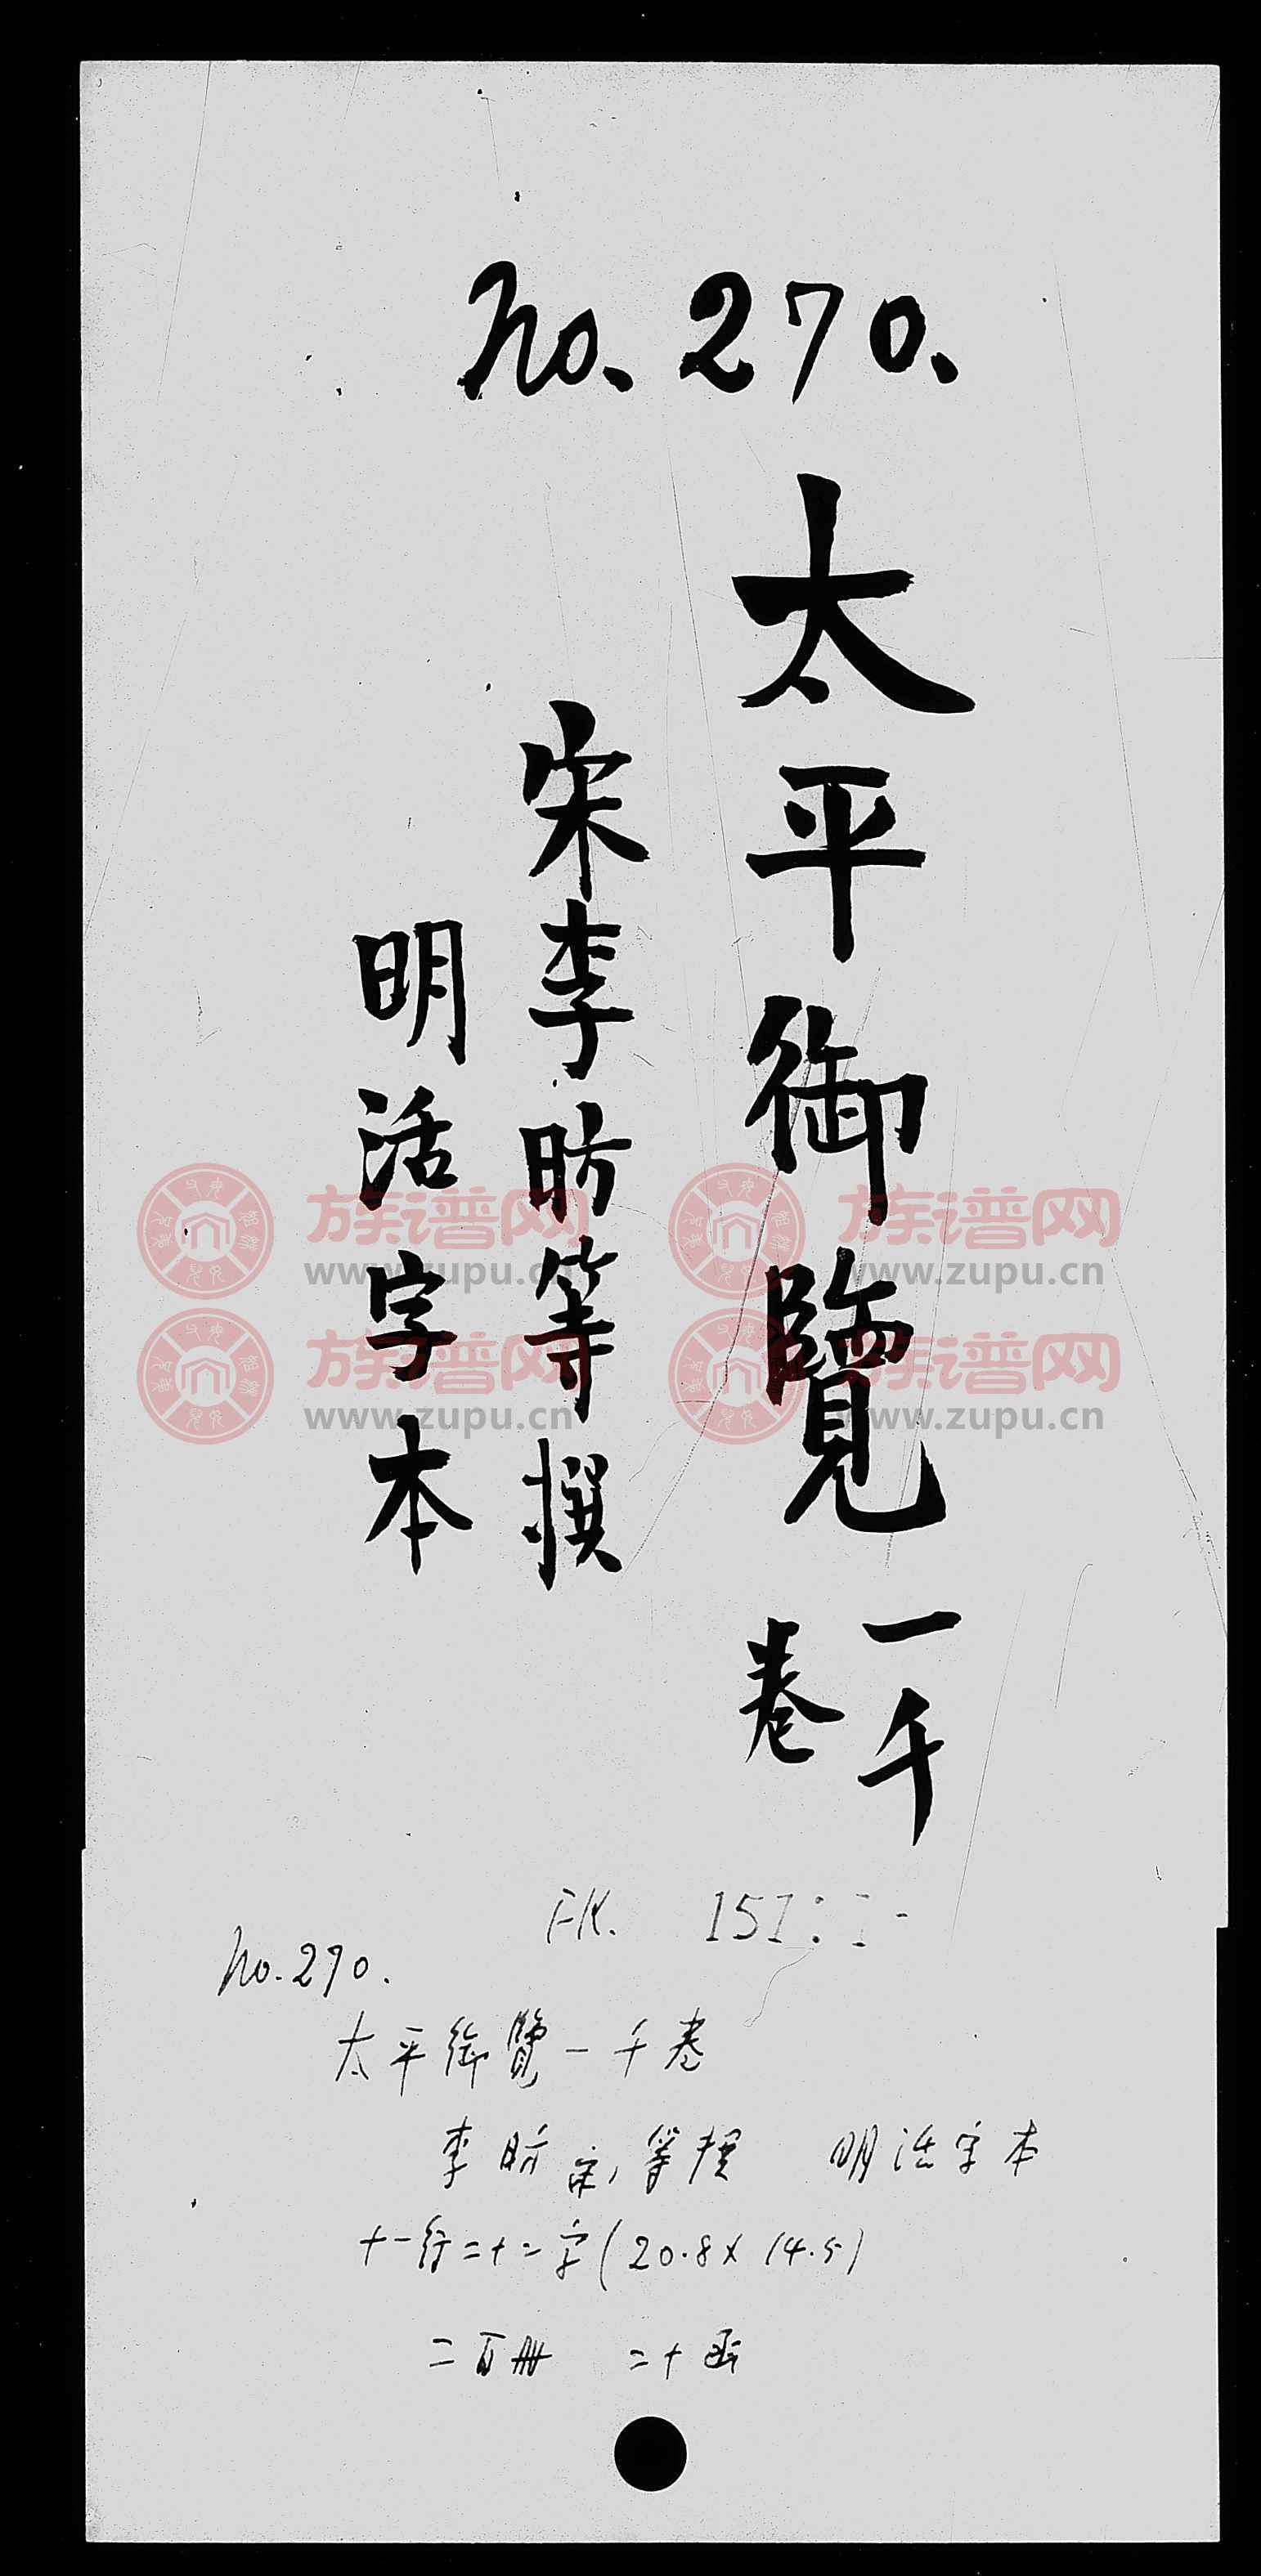 No. 270.
太平御覽一千卷
宋李昉等撰
明活字本
No. 270.
太平御覽一千卷
李昉宋,等撰 明活字本
十一行二十二字(20.8×14.5)
二百冊 二十函
族谱网
www.zupu.cn
族谱网
www.zupu.cn
族谱网
www.zupu.cn
族谱网
www.zupu.cn